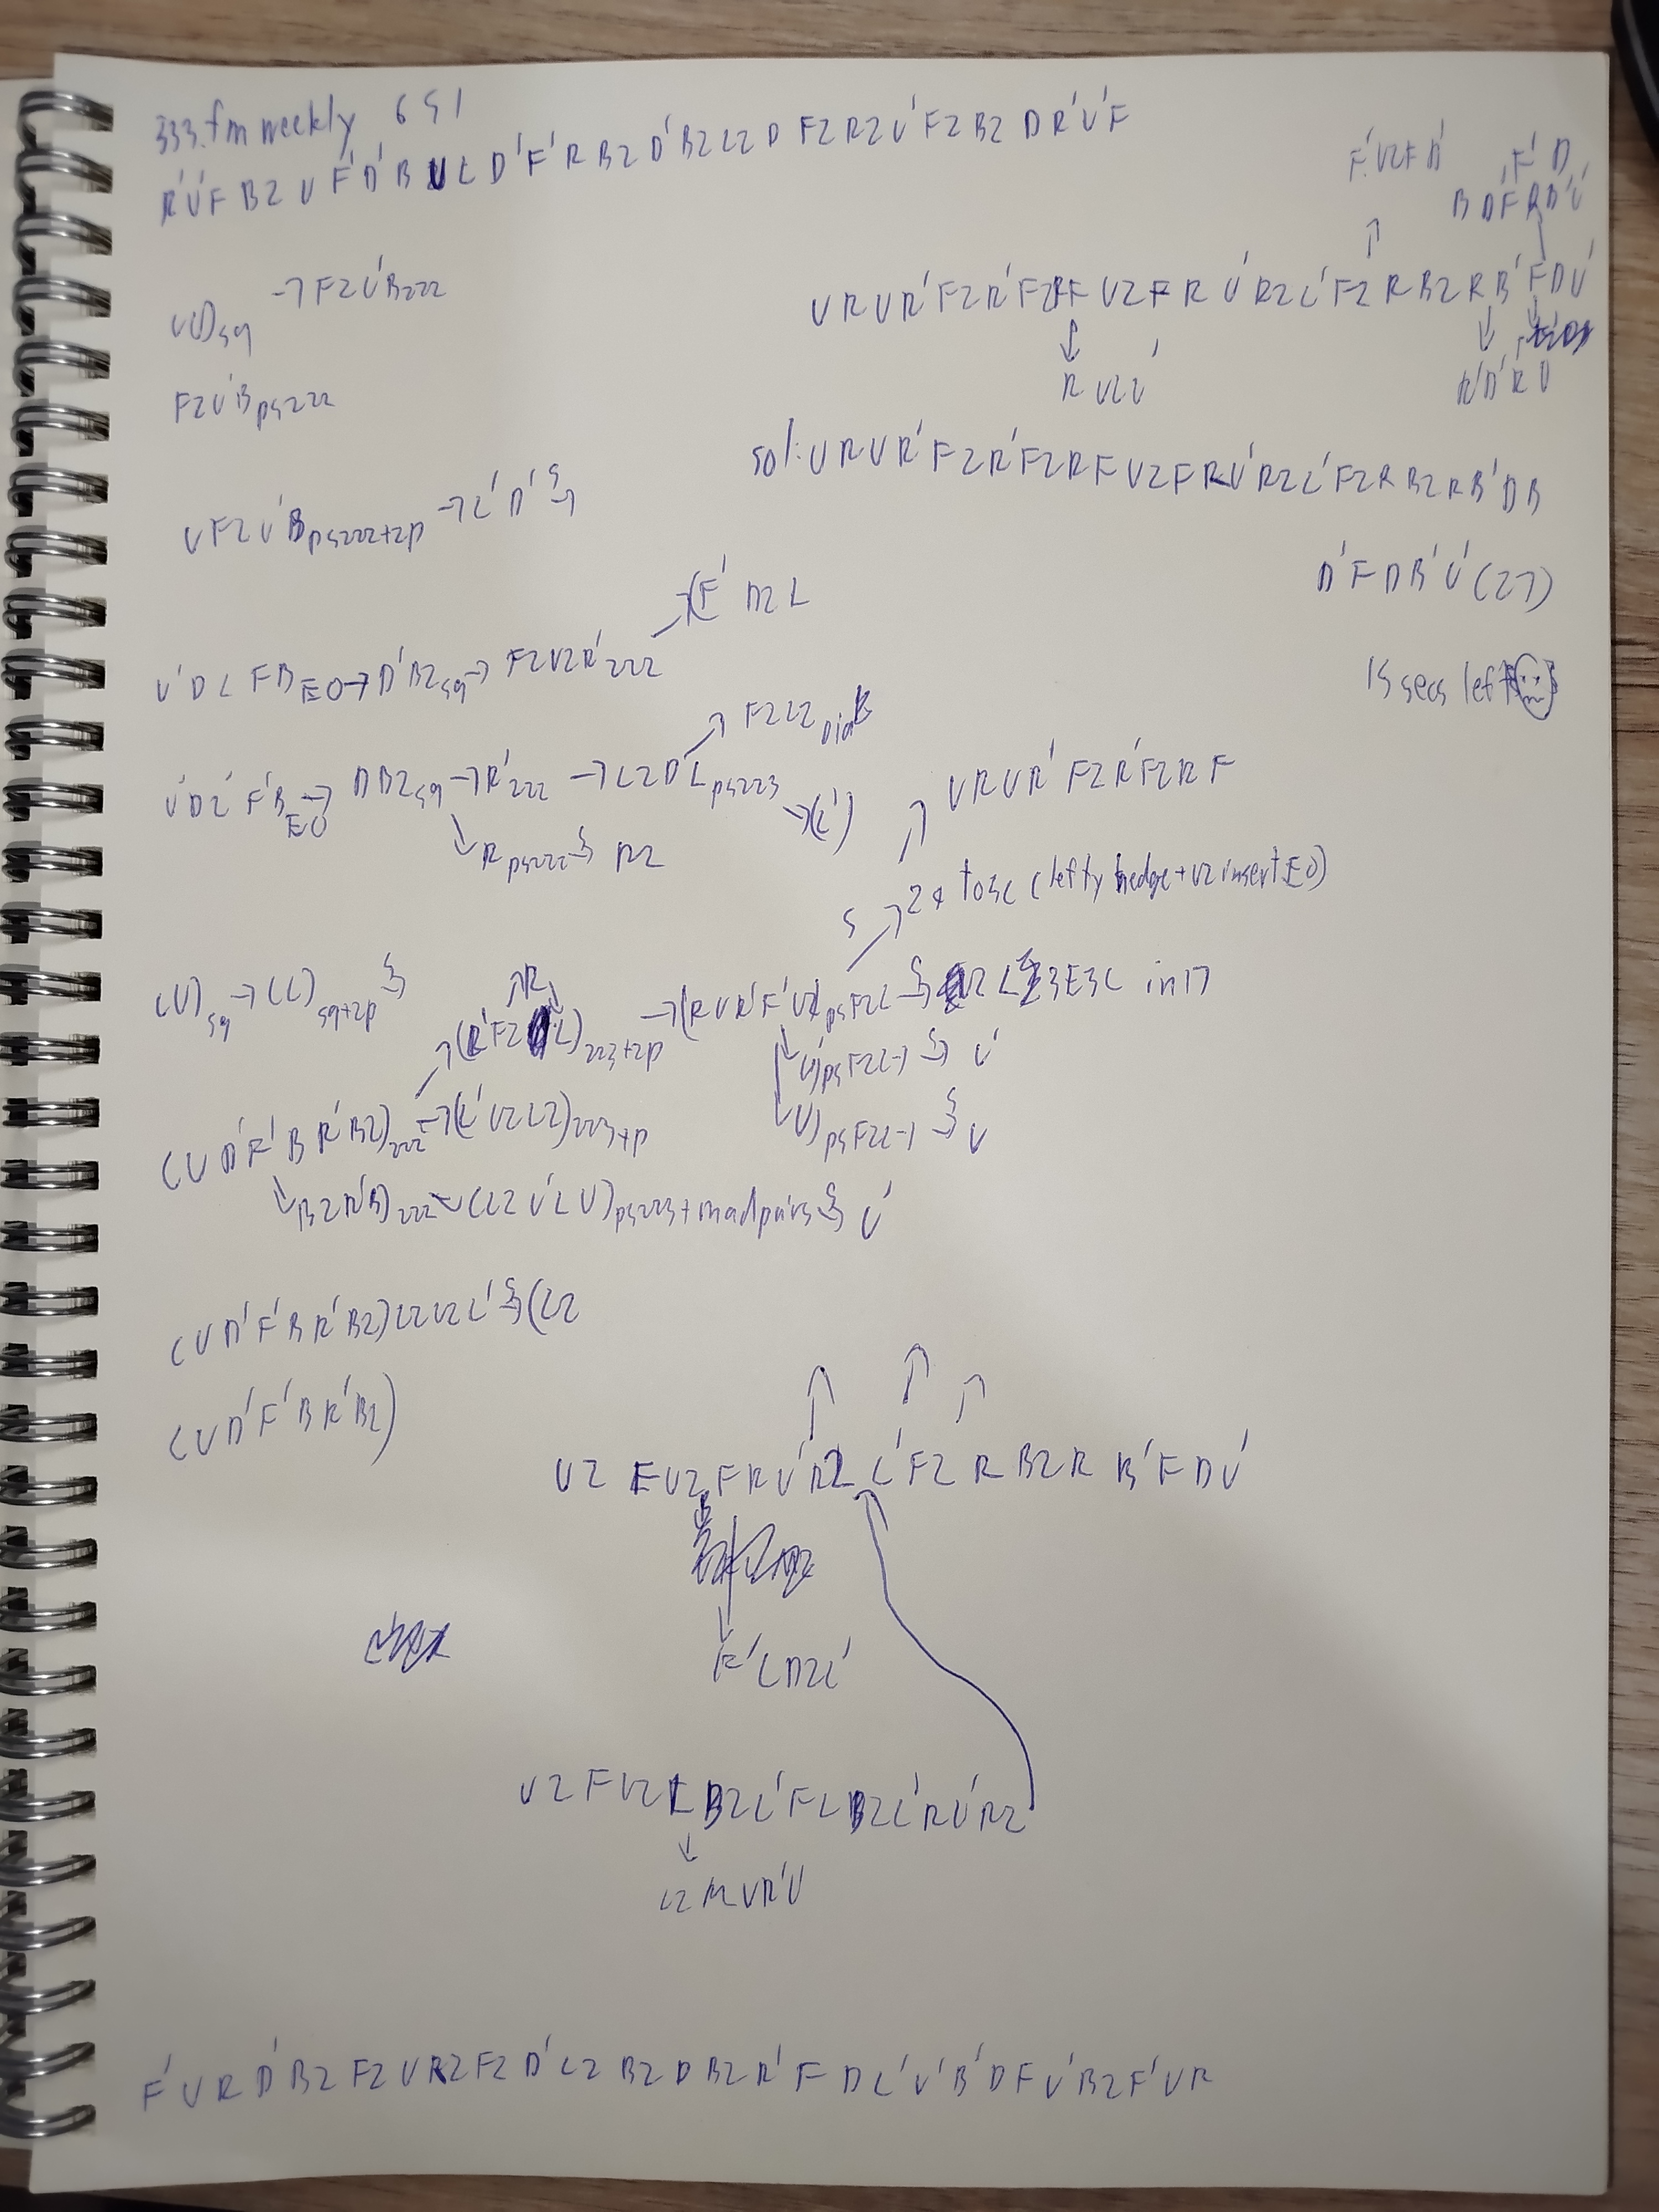 333.fm weekly 651
R' U' F B2 U F' D' B U L D' F' R B2 D' B2 L2 D F2 R2 U' F2 B2 D R' U' F
F' U2 F D'
F' D
B D' F R B' U'
→ F2 U' B 222
sq
U R U R' F2 R' F2 R F U2 F R U' R2 L' F2 R B2 R B' F D U'
R U2 U'
R' D' R D
F2 U' B ps222
sol: U R U R' F2 R' F2 R F U2 F R U' R2 L' F2 R B2 R B' D B
D' F D B' U' (27)
U F2 U' B ps222+2p → L' D'
(F' D2 L
U' D L F B EO → D' B2 sq → F2 U2 R' 222
15 secs left
F2 L2
U' D L' F' B EO → D B2 sq → R' 222 → L2 D' L ps223 → (L')
R ps222 → R2
U R U R' F2 R' F2 R F
2 4 to 3c (lefty hedge + U2 insert EO)
(U) sq → (L) sq+2p
(R' F2 L) 223+2p → (R U R' F' U2) psF2L 3E3C in 17
U') psF2L-1 → U'
U) psF2L-1 → U
(U D' F' B R' B2) 222 → (L' U2 L2) 223+p
B2 R' B) 222 (L2 U' L U) ps223+mad pairs → U'
(U D' F' B R' B2) L2 U2 L' → (L2
(U D' F' B R' B2)
U2 F U2 F R U' R2 L' F2 R B2 R B' F D U'
F' L D2 L'
U2 F U2 L B2 L' F L B2 L' R U' R2
L2 R U R' U'
F' U R D' B2 F2 U R2 F2 D' L2 B2 D B2 R' F D L' U' B' D F U' B2 F' U R